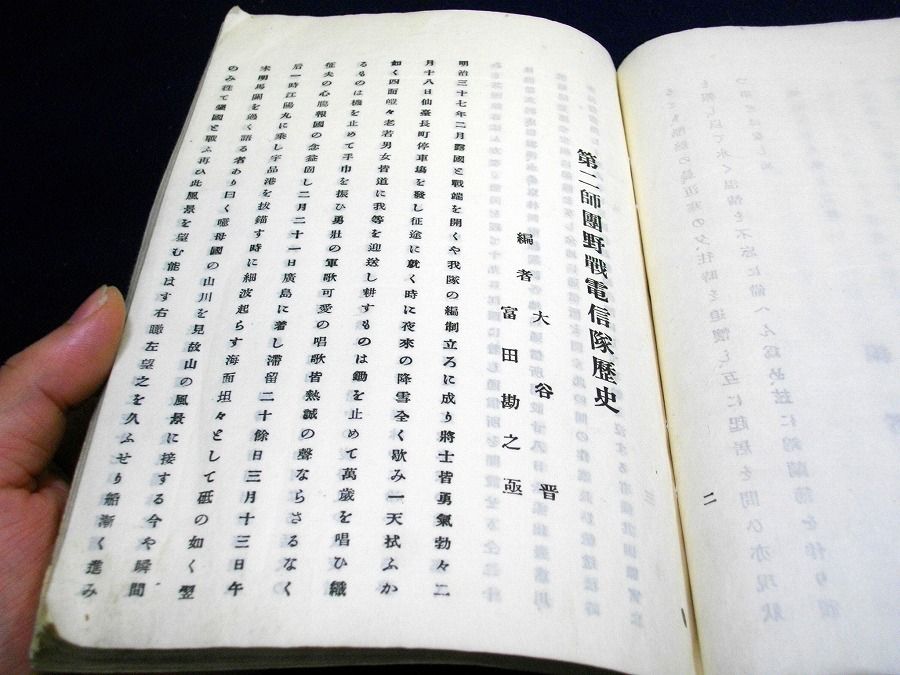 第二師團野戰電信隊歷史
編者 大谷晋
富田勘之亟
明治三十七年二月露國と戰端を開くや我隊の編制立ろに成り將士皆勇氣勃々二
月十八日仙臺長町停車塲を發し征途に就く時に夜來の降雪全く歇み一天拭ふか
如く四面皚々老若男女皆道に我等を迎送し耕すものは鋤を止めて萬歲を唱ひ織
るものは機を止めて手巾を振ひ勇壯の軍歌可愛の唱歌皆熱誠の聲ならさるなく
征夫の心膓報國の念益固し二月二十一日廣島に着し滯留二十餘日三月十三日午
后一時江陽丸に乘し宇品港を拔錨す時に細波起らす海面坦々として砥の如く翌
末明馬關を過く語る者あり曰く噫母國の山川を見故山の風景に接する今や瞬間
のみ往て蠻國と戰ふ再ひ此風景を望む能はす右瞰左望之を久ふせり船漸く進み
二